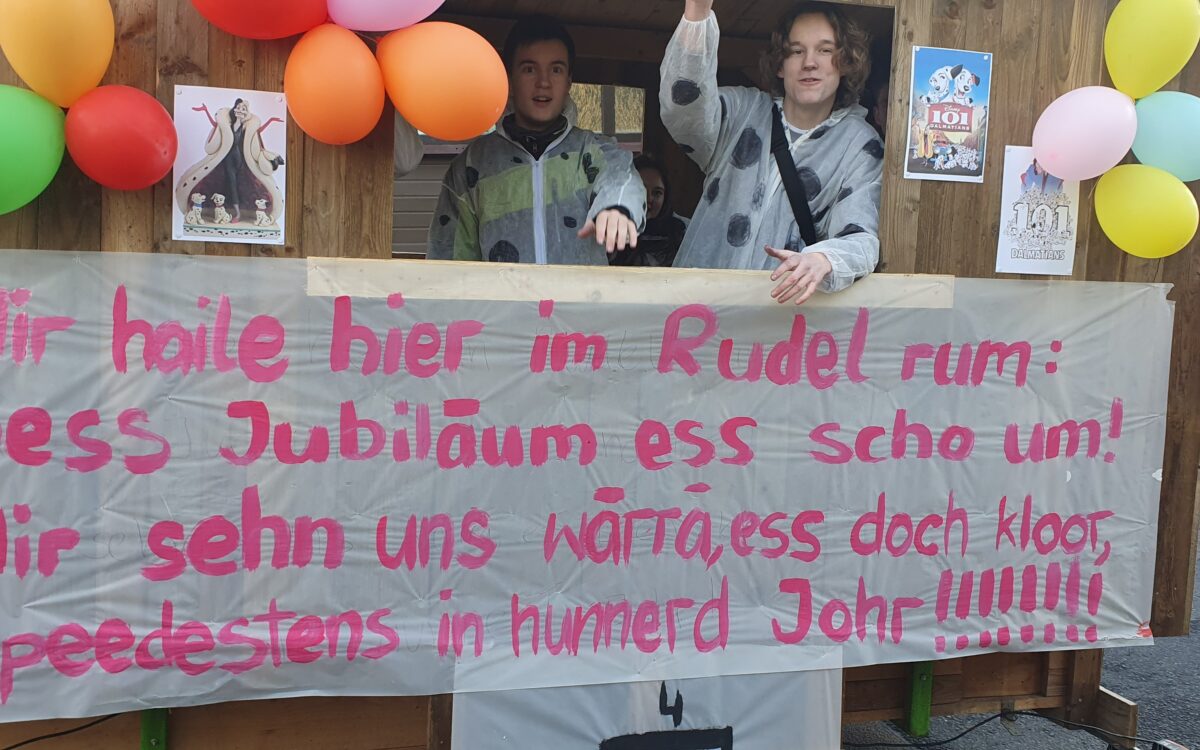 ir haile hier im Rudel rum:
ess Jubiläum ess scho um!
ir sehn uns wärrä, ess doch kloor,
peedestens in hunnerd Johr!!!!!!!!
Disney
101
DALMATIANS
101
DALMATIANS
4